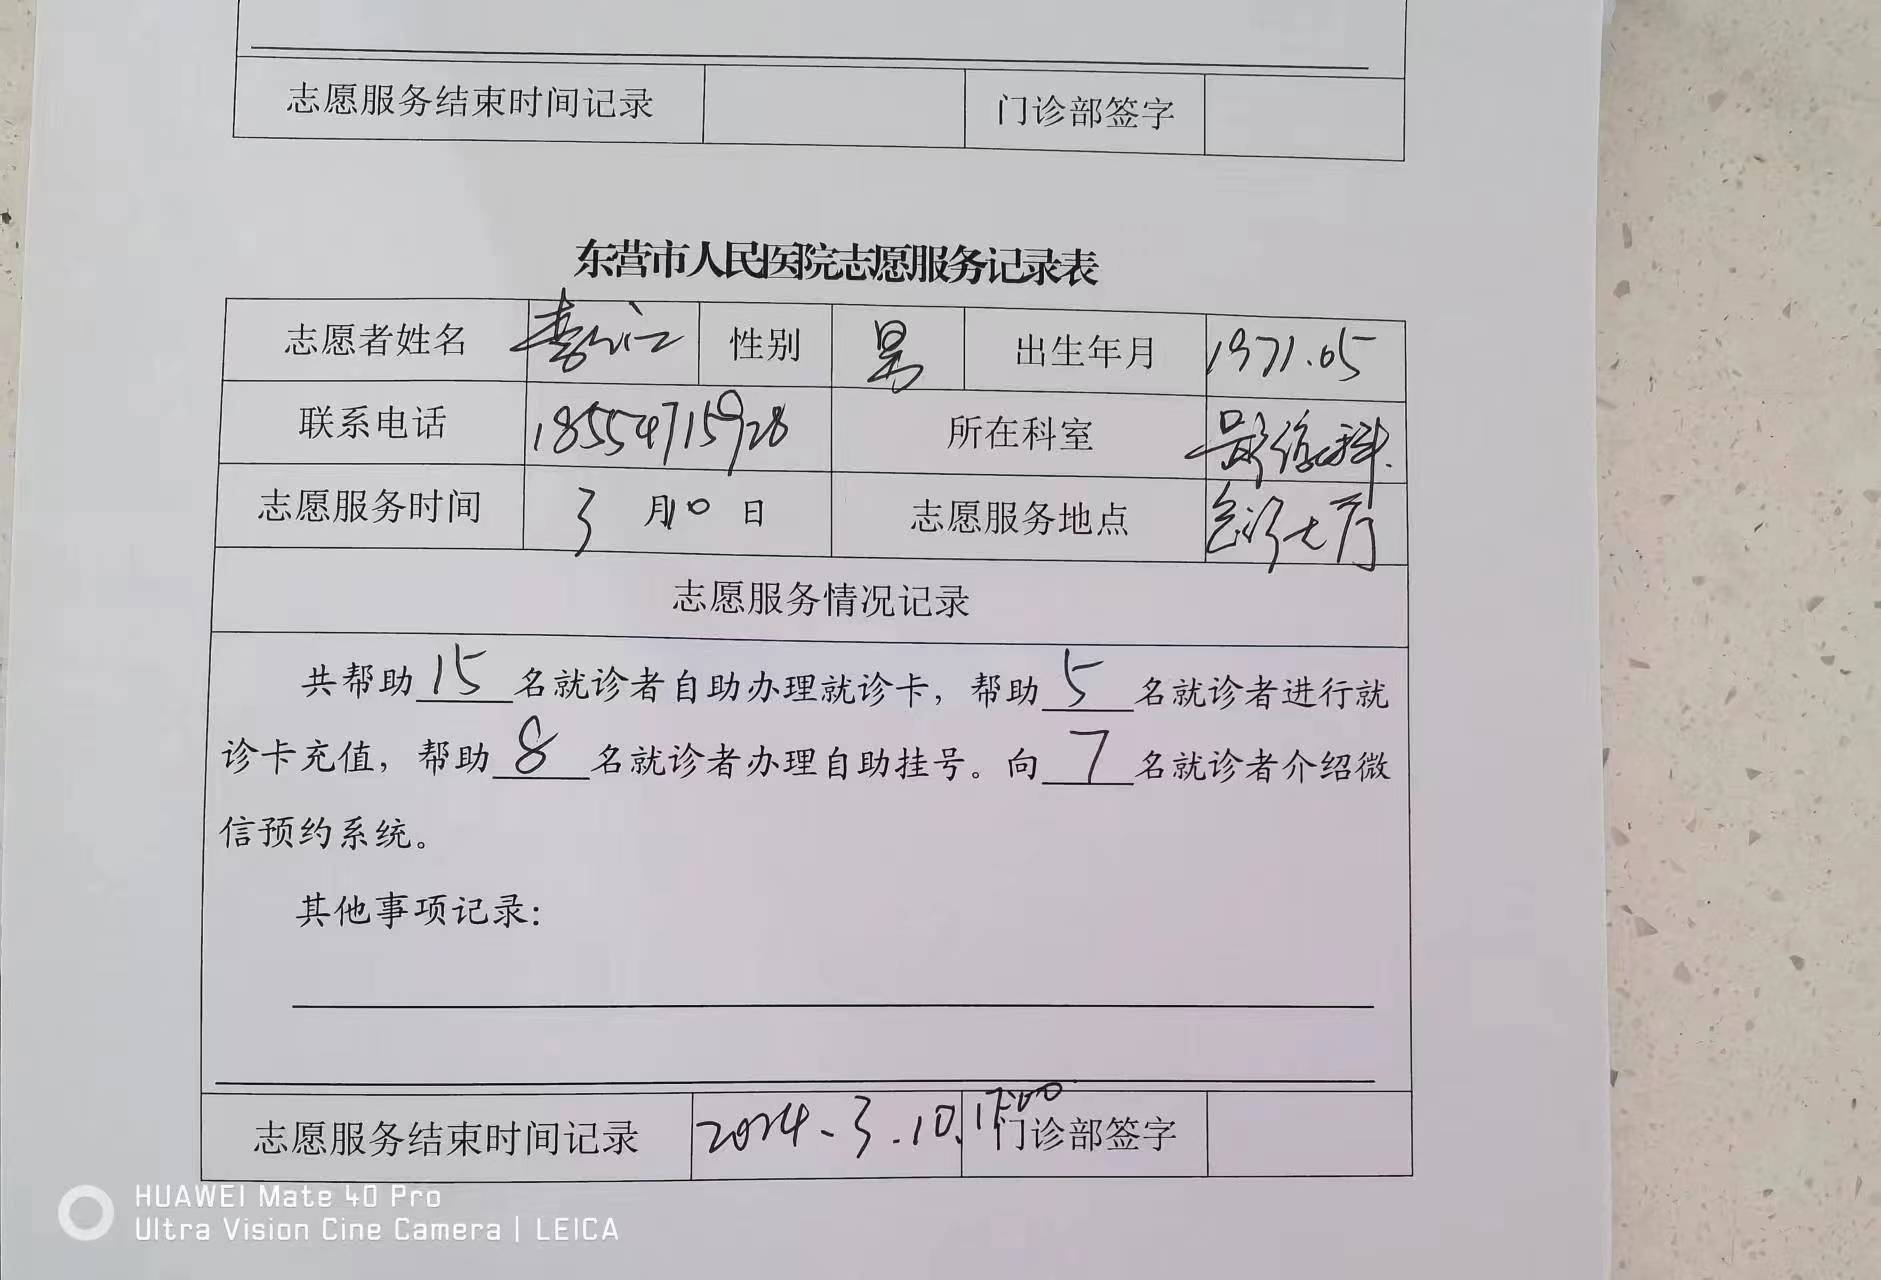 志愿服务结束时间记录 门诊部签字
东营市人民医院志愿服务记录表
志愿者姓名 性别 男 出生年月 1971.05
联系电话 18554715928 所在科室 影像科.
志愿服务时间 3月10日 志愿服务地点 门诊大厅
志愿服务情况记录
共帮助15名就诊者自助办理就诊卡，帮助5名就诊者进行就
诊卡充值，帮助8名就诊者办理自助挂号。向7名就诊者介绍微
信预约系统。
其他事项记录：
志愿服务结束时间记录 2024.3.10.17:00 门诊部签字
HUAWEI Mate 40 Pro
Ultra Vision Cine Camera | LEICA